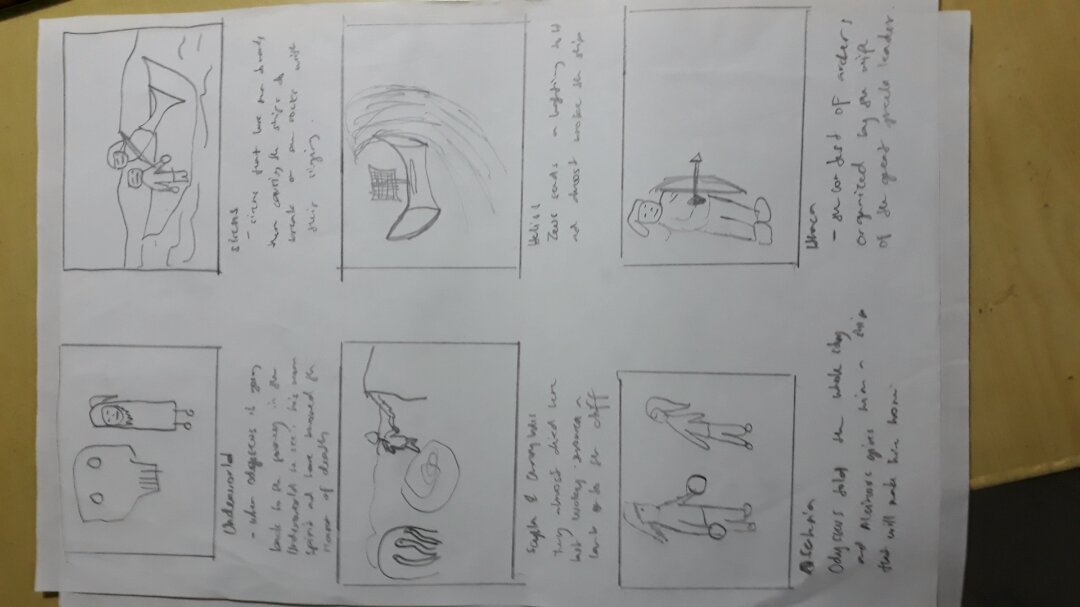 Underworld
- when odysseus is going
back to the journey in the
Underworld to see his mom
spirit and have
of death
sirens
- sirens that lure men towards
them causing the ships to
break on the rocks with
their singing.
Scylla &
They almost died here
but
to the cliff
Helios
Zeus sends a lightning
and almost broke the ship
Odysseus told the whole story
and gives him a ship
that will make him home
Ithaca
- the contest of archers
organized by the wife
of the great greek leader.